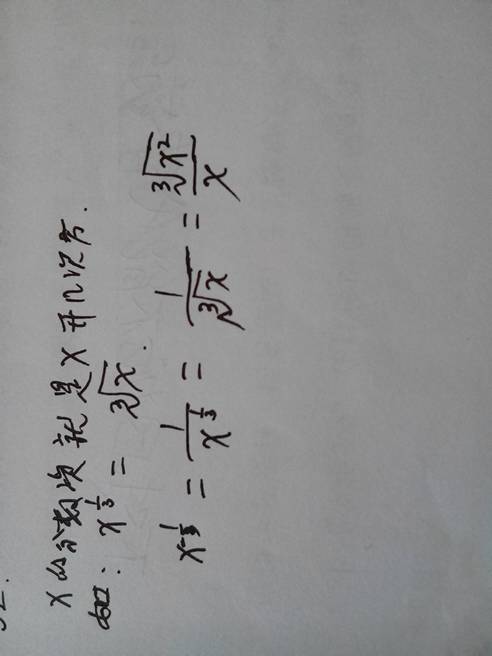 x的分数次就是x开几次方.
如: x^{\frac{1}{3}} = \sqrt[3]{x}.
x^{-\frac{1}{3}} = \frac{1}{x^{\frac{1}{3}}} = \frac{1}{\sqrt[3]{x}} = \frac{\sqrt[3]{x^2}}{x}